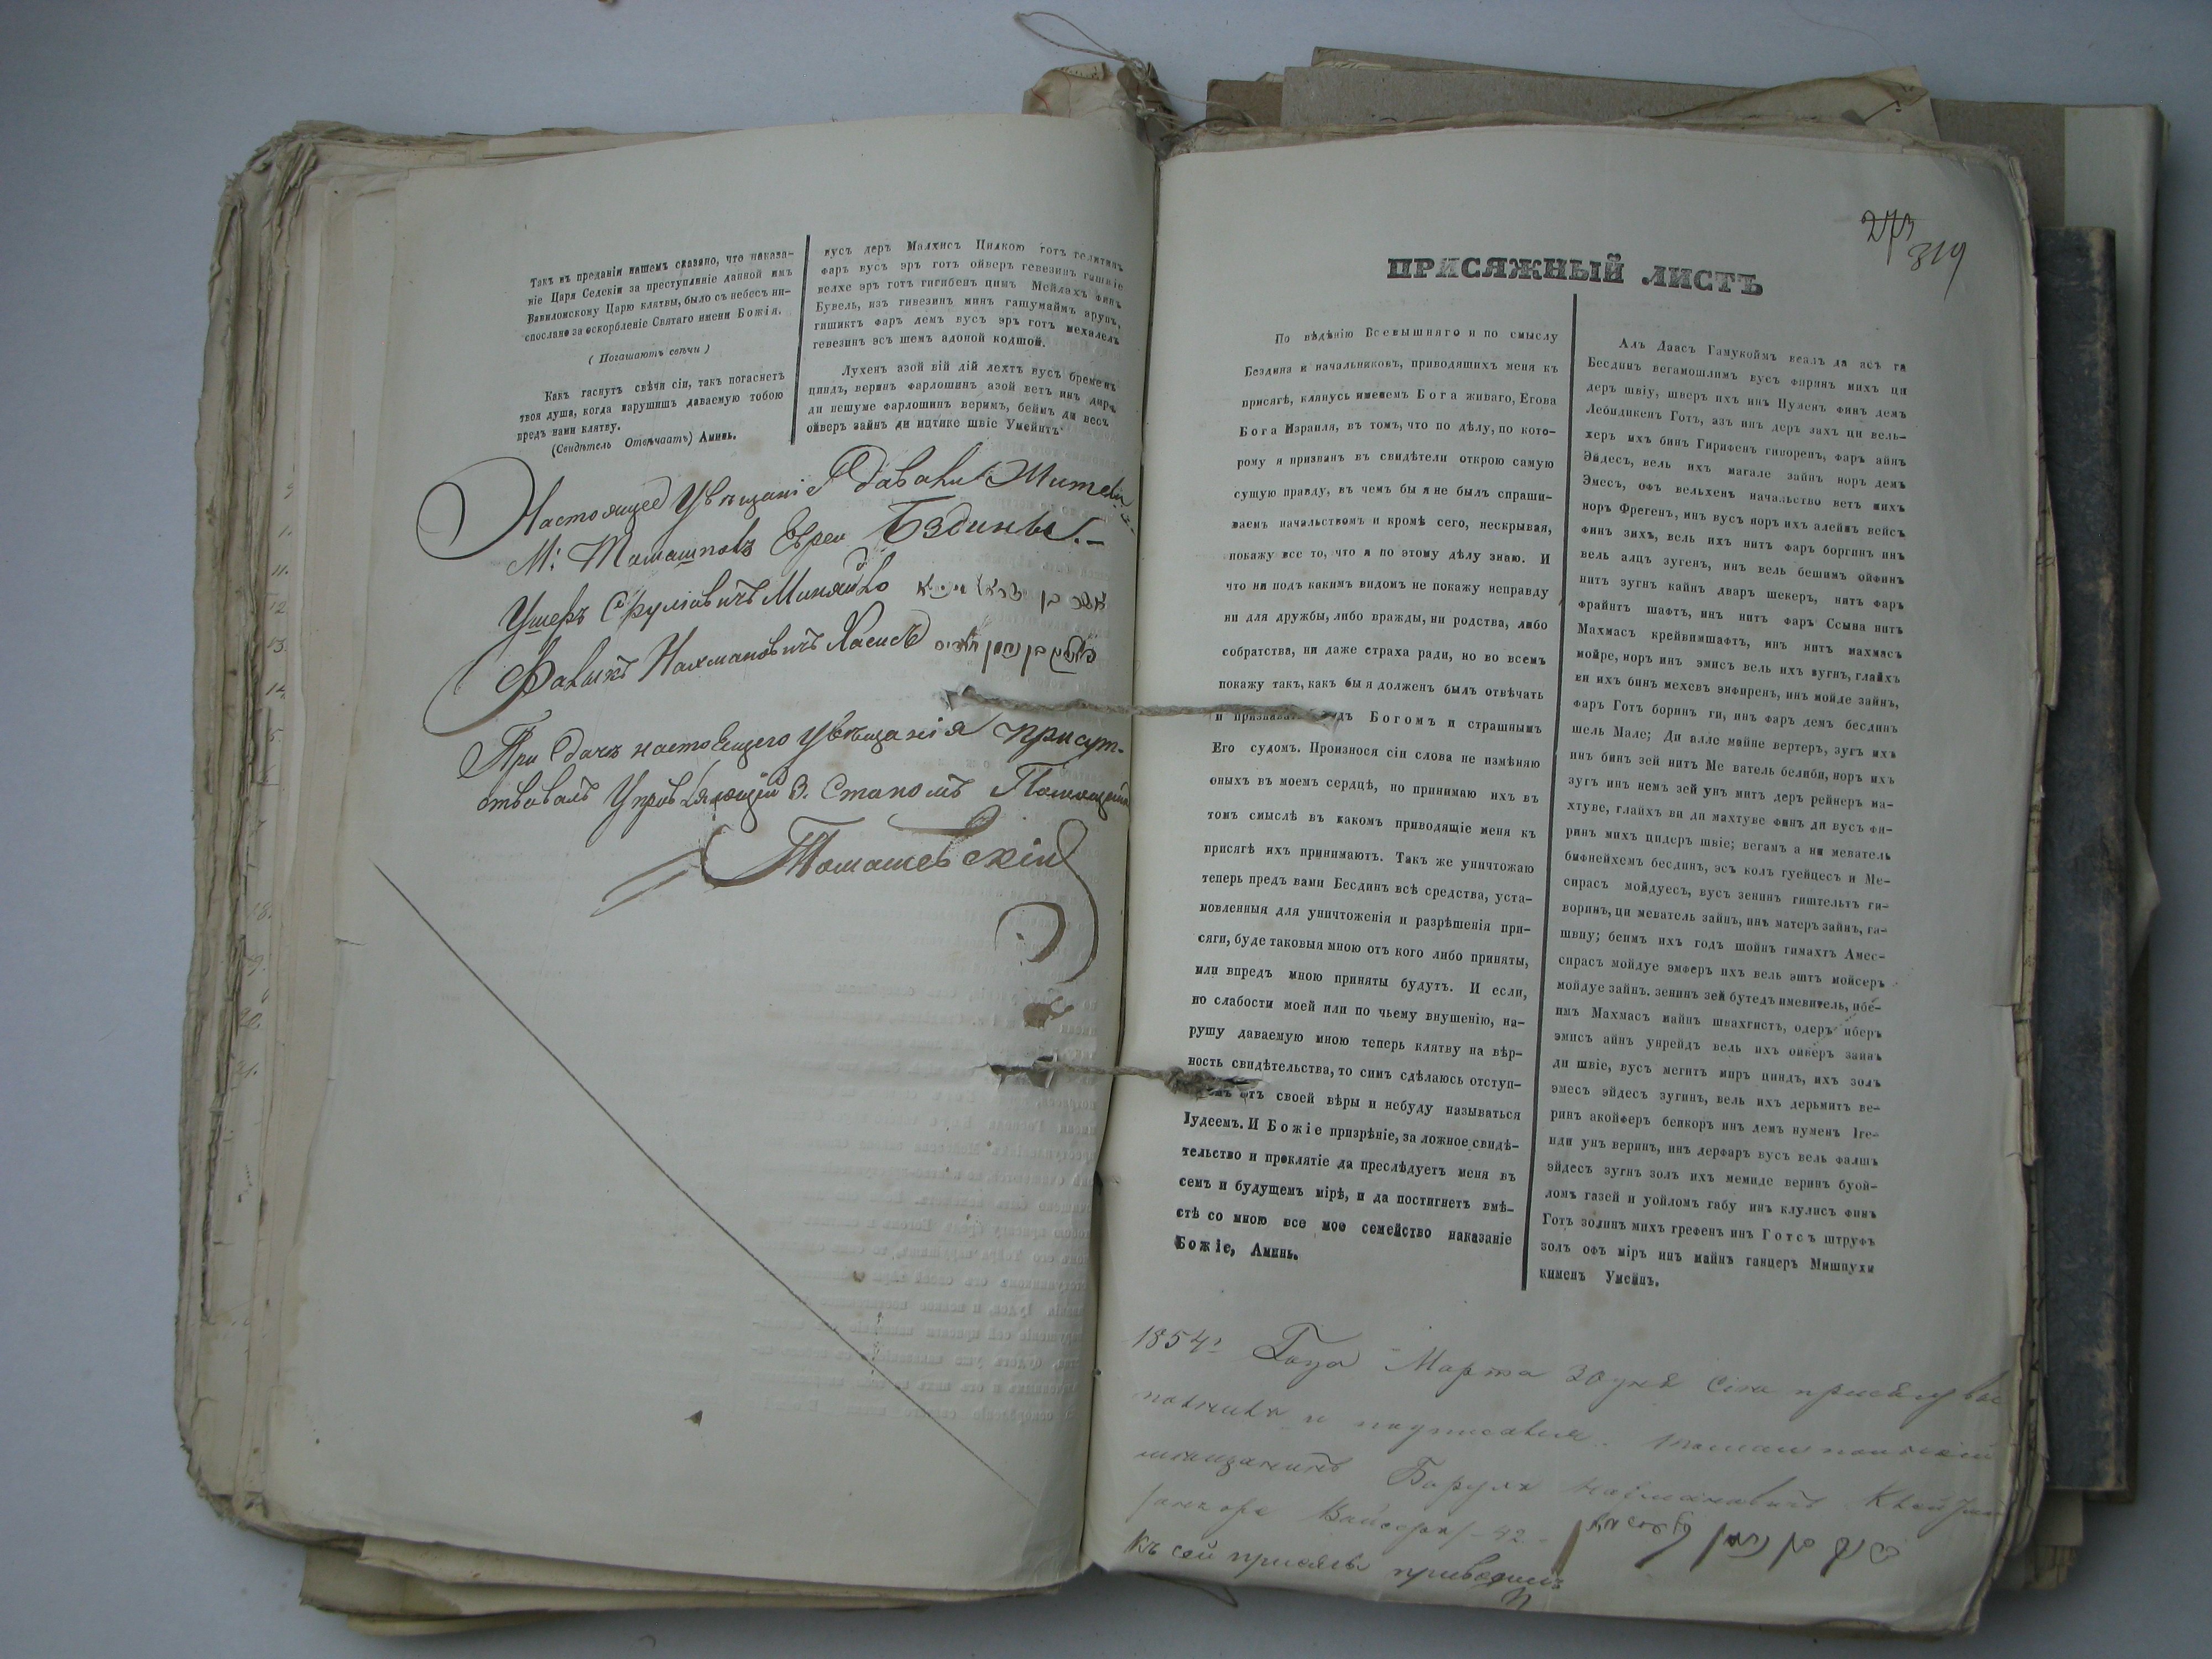 Такъ въ преданіи нашемъ сказано, что наказа-
ніе Царя Седекіи за преступленіе данной имъ
Вавилонскому Царю клятвы, было съ небесъ ни-
спослано за оскорбленіе Святаго имени Божія.
( Погашаютъ свѣчи )
Какъ гаснутъ свѣчи сіи, такъ погаснетъ
твоя душа, когда нарушишъ даваемую тобою
предъ нами клятву.
(Свидѣтель Отвѣчаетъ) Аминь.
вусъ деръ Малхисъ Цидкою готъ
фаръ вусъ эръ готъ ойверъ гевезинъ
велхе эръ готъ гигибенъ цимъ Мейлэхъ финъ
Бувель, изъ гивезинъ минъ гашумаимъ арупъ,
гишиктъ фаръ демъ вусъ эръ готъ мехалелъ
гевезинъ эсъ шемъ адоной кодшой.
Лухенъ азой вій дій лехтъ вусъ бременъ
циндъ, веринъ фарлошинъ азой ветъ инъ дира
ди нешуме фарлошинъ веримъ, беймъ ди весъ
ойверъ зайнъ ди ицтике швіе Умейнъ.
Настоящее Увѣщаніе давали Жители
М: Томашполь Евреи Бздины.-
Ушеръ Сруліовичъ
Нахмановичъ Хасисъ
При сдачѣ настоящего увѣщанія присут-
ствовалъ Управляющій 3. Станомъ
Томашевскій
273
319
ПРИСЯЖНЫЙ ЛИСТЪ
По вѣдѣнію Всевышняго и по смыслу
Бездина и начальниковъ, приводящихъ меня къ
присягѣ, клянусь именемъ Бога живаго, Егова
Бога Израиля, въ томъ, что по дѣлу, по кото-
рому я призванъ въ свидѣтели открою самую
сущую правду, въ чемъ бы я не былъ спраши-
ваемъ начальствомъ и кромѣ сего, нескрывая,
покажу все то, что я по этому дѣлу знаю. И
что ни подъ какимъ видомъ не покажу неправду
ни для дружбы, либо вражды, ни родства, либо
собратства, ни даже страха ради, но во всемъ
покажу такъ, какъ бы я долженъ былъ отвѣчать
и Богомъ и страшнымъ
Его судомъ. Произнося сіи слова не измѣняю
оныхъ въ моемъ сердцѣ, но принимаю ихъ въ
томъ смыслѣ въ какомъ приводящіе меня къ
присягѣ ихъ принимаютъ. Такъ же уничтожаю
теперь предъ вами Бесдинъ всѣ средства, уста-
новленныя для уничтоженія и разрѣшенія при-
сяги, буде таковыя мною отъ кого либо приняты,
или впредъ мною приняты будутъ. И если,
по слабости моей или по чьему внушенію, на-
рушу даваемую мною теперь клятву на вѣр-
ность свидѣтельства, то симъ сдѣлаюсь отступ-
отъ своей вѣры и небуду называться
Іудеемъ. И Божіе призрѣніе, за ложное свидѣ-
тельство и проклятіе да преслѣдуетъ меня въ
семъ и будущемъ мірѣ, и да постигнетъ вмѣ-
стѣ со мною все мое семейство наказаніе
Божіе, Аминь.
Алъ Даасъ Гамукоймъ веалъ да асъ га
Бесдинъ вегамошлимъ вусъ фирянъ михъ ци
деръ швіу, шверъ ихъ инъ Нуменъ финъ демъ
Лебидикенъ Готъ, азъ инъ деръ захъ ци вель-
херъ ихъ бинъ Гирифенъ гиворенъ, фаръ айнъ
Эйдесъ, вель ихъ магале зайнъ норъ демъ
Эмесъ, офъ вельхенъ начальство ветъ михъ
норъ Фрегенъ, инъ вусъ норъ ихъ алейнъ вейсъ
финъ зихъ, вель ихъ нитъ фаръ боргинъ инъ
вель алцъ зугенъ, инъ вель бешимъ ойфинъ
нитъ зугнъ кайнъ дваръ шекеръ, нитъ фаръ
фрайнтъ шафтъ, инъ нитъ фаръ Ссына нитъ
Махмасъ крейвимшафтъ, инъ нитъ махмасъ
мойре, норъ инъ эмисъ вель ихъ зугнъ, глайхъ
ви ихъ бинъ мехевъ энфиренъ, инъ мойде зайнъ,
фаръ Готъ боринъ ги, инъ фаръ демъ бесдинъ
шель Мале; Ди алле майне вертеръ, зугъ ихъ
инъ бинъ зей нитъ Ме ватель белиби, норъ ихъ
зугъ инъ немъ зей унъ митъ деръ рейнеръ ма-
хтуве, глайхъ ви ди махтуве финъ ди вусъ фи-
ринъ михъ цидеръ швіе; вегамъ а ни меватель
бифнейхемъ бесдинъ, эсъ колъ гуейцесъ и Ме-
сирасъ мойдуесъ, вусъ зенинъ гиштельтъ ги-
воринъ, ци меватель зайнъ, инъ матеръ зайнъ, га-
швиу; беимъ ихъ годъ шойнъ гимахтъ Амес-
сирасъ мойдуе эмферъ ихъ вель эштъ мойсеръ
мойдуе зайнъ. зенинъ зей бутедъ имевитель, ибе-
имъ Махмасъ майнъ швахгистъ, одеръ иберъ
эмисъ айнъ унрейдъ вель ихъ ойверъ зайнъ
ди швіе, вусъ мегитъ миръ циндъ, ихъ золъ
эмесъ эйдесъ зугинъ, вель ихъ дерьмитъ ве-
ринъ акойферъ беикоръ инъ демъ нуменъ Іге-
иди унъ веринъ, инъ дерфаръ вусъ вель фалшъ
эйдесъ зугнъ золъ ихъ мемиде веринъ буой-
ломъ газей и уойломъ габу инъ клулисъ финъ
Готъ золинъ михъ грефенъ инъ Готсъ штруфъ
золъ офъ міръ инъ майнъ ганцеръ Мишпухи
кименъ Умейнъ.
1854: Года Марта 30 дня Сію присягу вы
полнилъ и подписался. томашпольскій
мещанинъ Борухъ Нахмановичъ
42
Къ сей присягѣ приводилъ